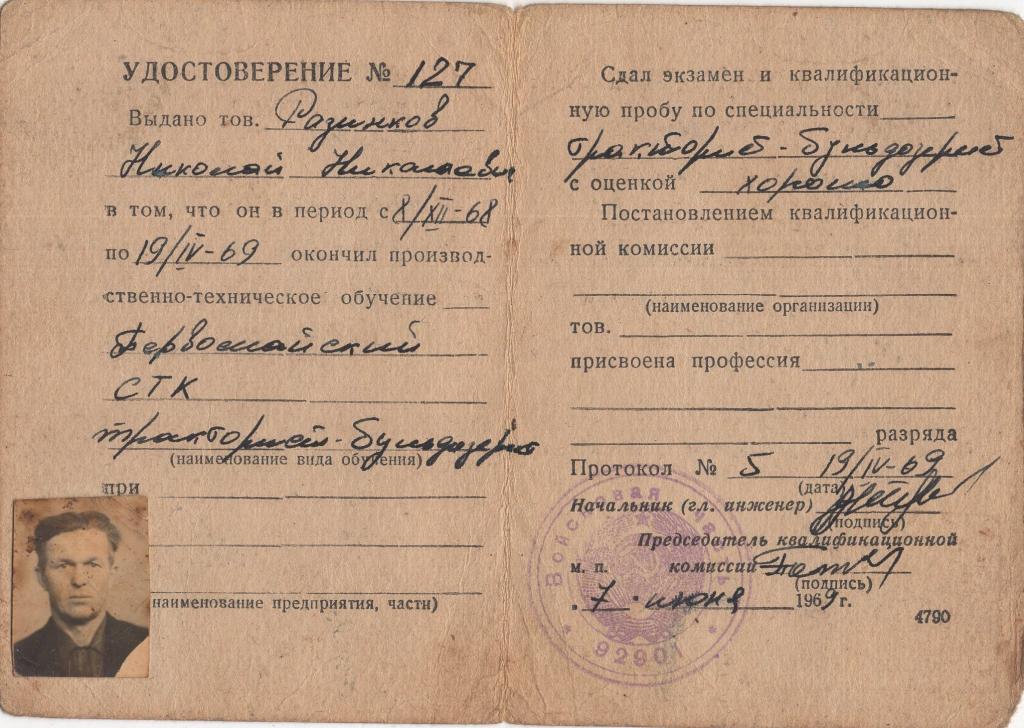 УДОСТОВЕРЕНИЕ № 127
Выдано тов. Разинков
Николай Николаевич
в том, что он в период с 8/XII-68
по 19/IV-69 окончил производ-
ственно-техническое обучение
Первомайский
СТК
тракторист-бульдозерист
(наименование вида обучения)
при
наименование предприятия, части)
Сдал экзамен и квалификацион-
ную пробу по специальности
тракторист-бульдозерист
с оценкой хорошо
Постановлением квалификацион-
ной комиссии
(наименование организации)
тов.
присвоена профессия
разряда
Протокол № 5 19/IV-69
(дата)
Начальник (гл. инженер)
(подпись)
Председатель квалификационной
м. п. комиссии
(подпись)
7 июня 1969 г.
4790
Войсковая часть
92901